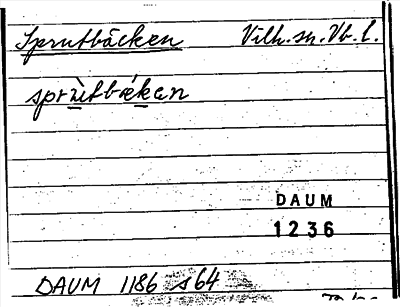 Sprutbäcken Vilh. sn. Vb. l.
sprùtbækan
DAUM
1236
DAUM 1186 s 64